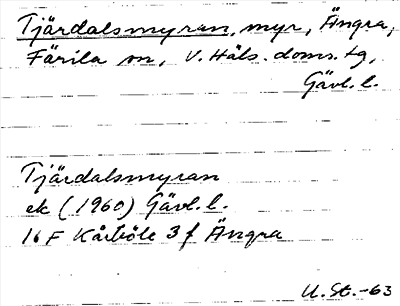 Tjärdalsmyran, myr, Ängra,
Färila sn, V. Häls. doms. tg,
Gävl. l.
Tjärdalsmyran
ek (1960) Gävl. l.
16 F Kårböle 3 f Ängra
U. St. -63